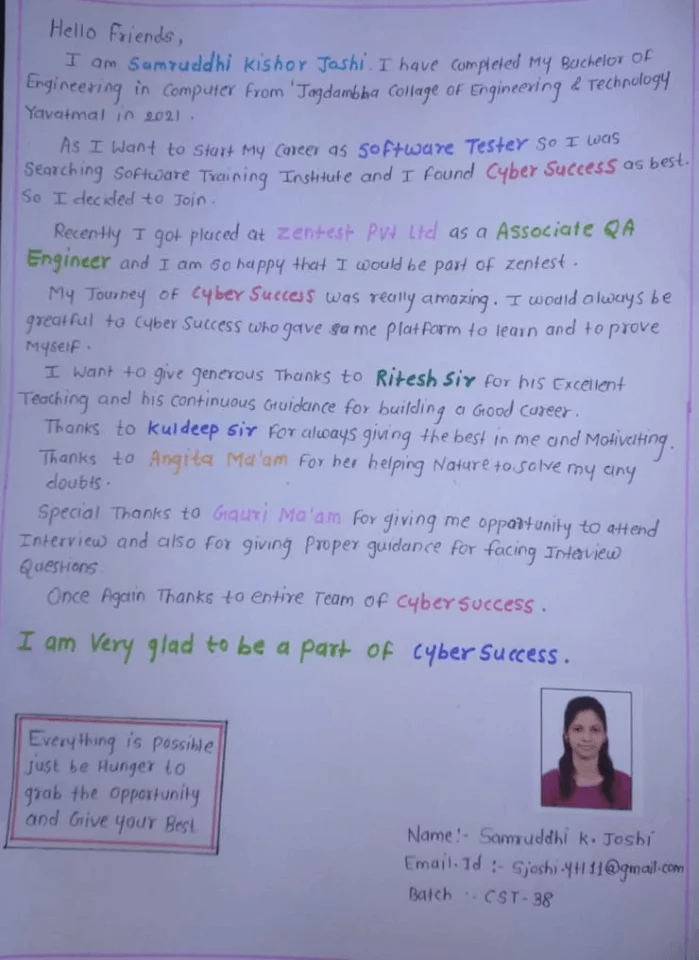 Hello Friends,
I am Samruddhi Kishor Joshi. I have completed My Bachelor of
Engineering in Computer From 'Jagdambha Collage of Engineering & Technology
Yavatmal in 2021.
As I Want to Start My Career as Software Tester So I was
Searching Software Training Institute and I found Cyber Success as best.
So I decided to Join.
Recently I got placed at zentest Pvt Ltd as a Associate QA
Engineer and I am so happy that I would be part of zentest.
My Journey of Cyber Success was really amazing. I would always be
greatful to Cyber Success who gave me Platform to learn and to prove
Myself.
I Want to give generous Thanks to Ritesh Sir for his Excellent
Teaching and his continuous Guidance for building a Good career.
Thanks to Kuldeep Sir For always giving the best in me and Motivating.
Thanks to Angita Ma'am For her helping Nature to solve my any
doubts.
Special Thanks to Gauri Ma'am For giving me opportunity to attend
Interview and also for giving Proper guidance for facing Interview
Questions.
Once Again Thanks to entire Team of Cyber Success.
I am Very glad to be a part of Cyber Success.
Everything is possible
just be Hunger to
grab the Opportunity
and Give your Best
Name:- Samruddhi K. Joshi
Email.Id :-
Batch :- CST-38